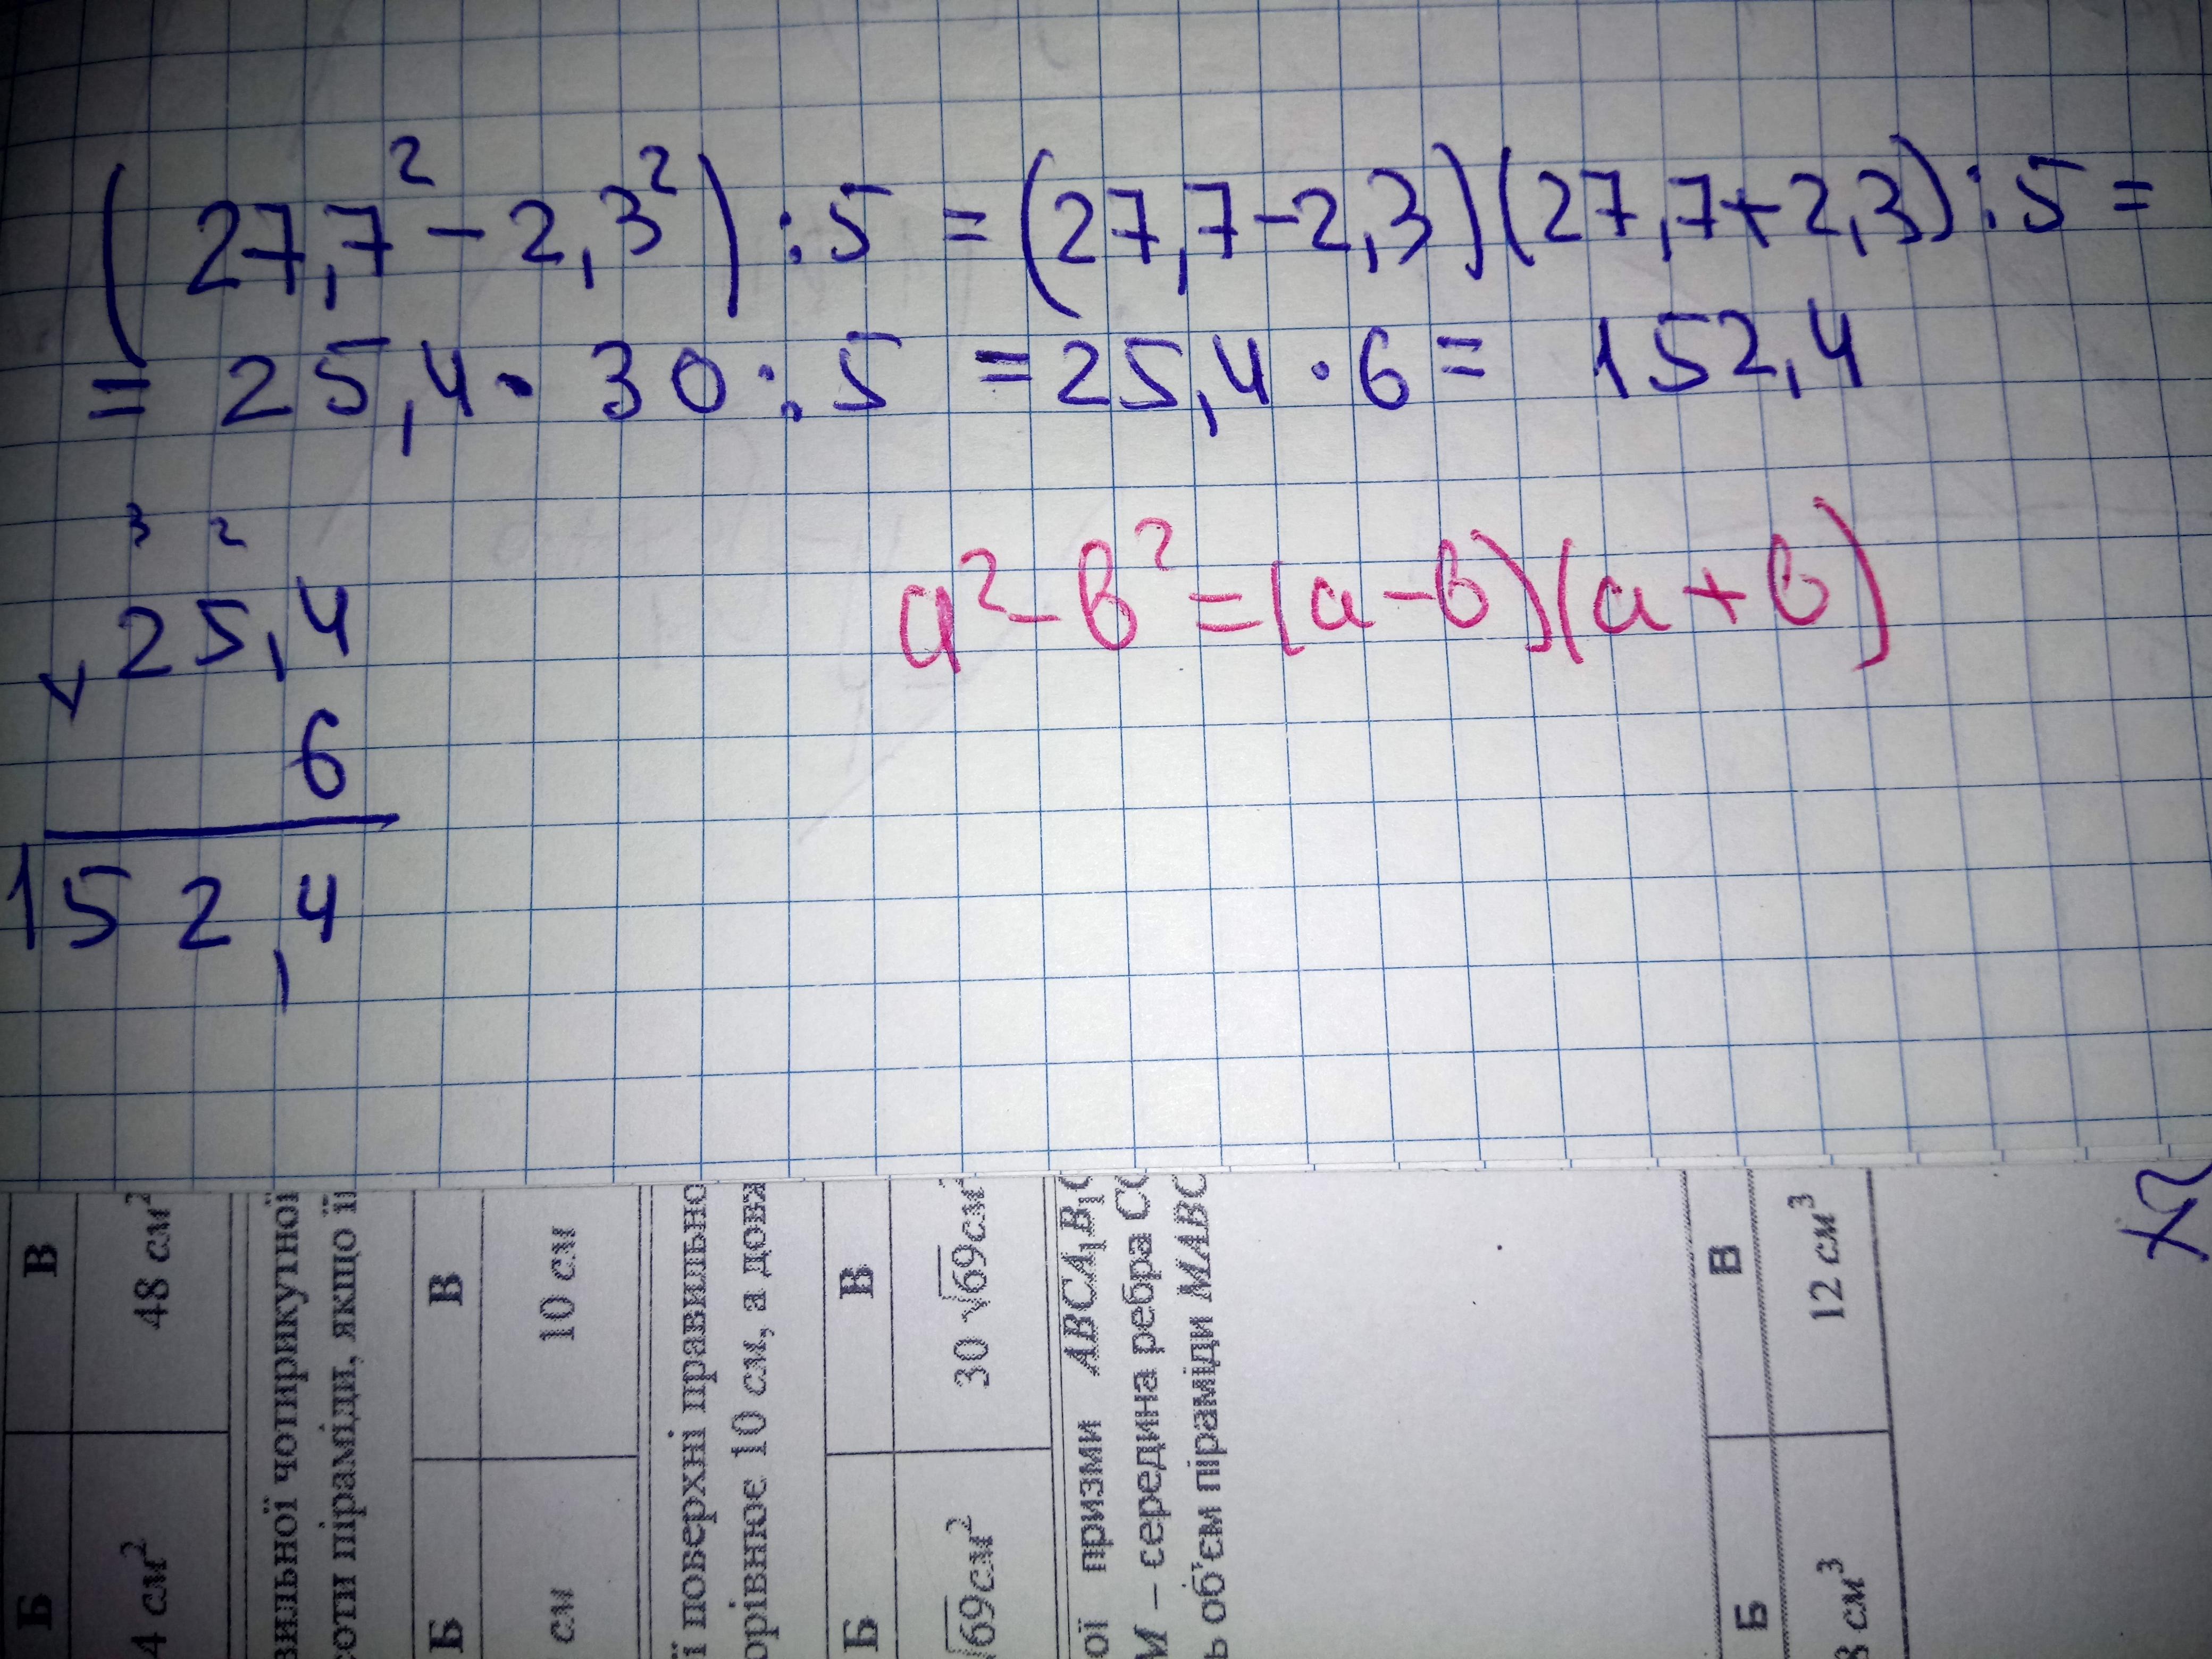 (27,7² - 2,3²) : 5 = (27,7-2,3)(27,7+2,3) : 5 =
= 25,4 · 30 : 5 = 25,4 · 6 = 152,4
3 2
25,4
6
152,4
a² - b² = (a - b)(a + b)
Б В
4 см² 48 см²
чотирикутної
піраміди, якщо її
Б В
см 10 см
ї поверхні правильно
10 см, а
Б В
√69 см² 30 √69 см²
призми ABCA₁B₁
M – середина ребра
об'єм піраміди MABC
Б В
см³ 12 см³